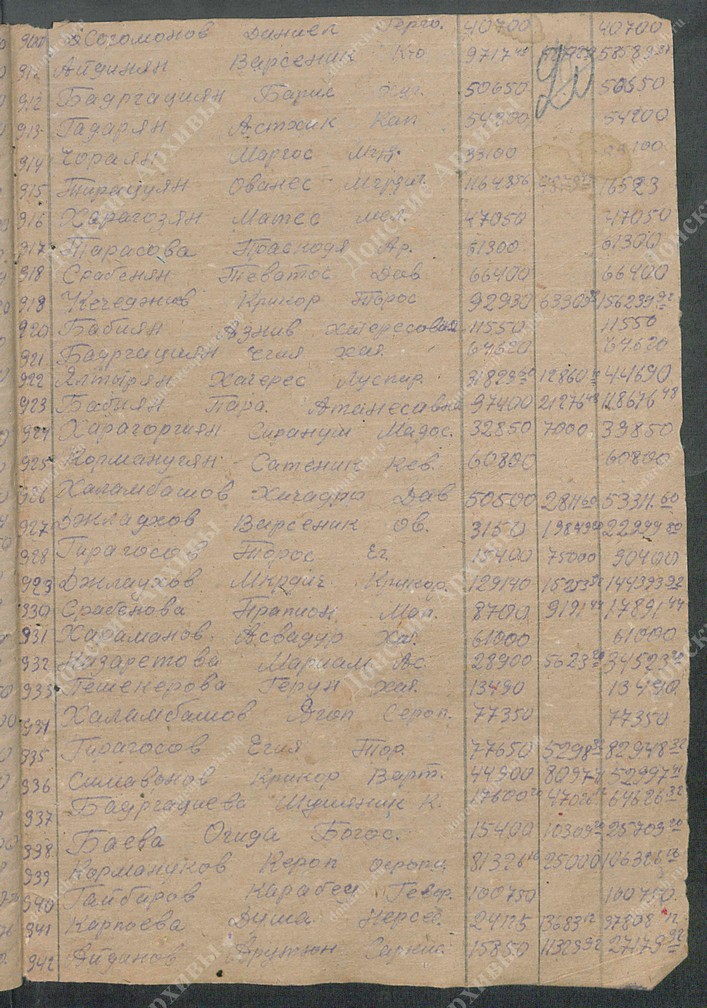 910 Согомонов Даниел Герго. 40700 40700
911 Айдинян Варсеник Кю 9717
912 Бадргациян Барис 50650 50650
913 Гадарян Астхик Кап 54200 54200
914 Чораян Маргос 33100
915 Тирацуян Ованес Мгрдич. 16523
916 Харагозян Матео мел. 47050 47050
917 Тарасова Праскодя Ар. 61300 61300
918 Срабенян Теватос Дав 66400 66400
919 Чечеджиев Крикор Торос 92930 63309 156239 92
920 Бабиян Азнив Хатересовна 11550 11550
921 Бадргациян Егия Хат. 67620 67620
922 Ялтырян Хатерес Луспир. 31829 12860 44690
923 Бабиян Пара. Атанесавна 97400 21276 48 118676 48
924 Харагоргиян Сирануш Мадос. 32850 7000 39850
925 Кормануцян Сатеник Кев. 60800 60800
926 Халамбашов Хичадур Дав 50500 2811 60 53311.60
927 Джлаухов Варсеник ов. 3150
928 Гирагосов Торос Ег 15400 75000 90400
929 Джлаухов Мкрдич Крикор. 129140 15253 92 144393 92
930 Срабенова Прапион Мар. 8700 9191 44 17891 44
931 Хараманов. Асвадур Хат. 61000 61000
932 Назаретова Мариам Ас. 28900 5623 34523
933 Гешекерова Герун Хат. 13490 13490
934 Халамбашов Агоп Сероп. 77350 77350
935 Гирагосов Егия Тор. 77650 5298 32 82948 32
936 Симавонов Крикор Варт. 44900 8097 52997
937 Бадргациева Шушаник К. 17600 47026 64626 32
938 Баева Огида Богос. 15400 10309 25709
939 Кормануков Кероп осропи. 81326 25000 106326
940 Гайбаров Карабет Гевор. 100750 100750.
941 Карпоева Диша Нерсес. 24125 13683 12 37808 12
942 Айданов Арутюн Саркис. 15850 11329 92 27179 92